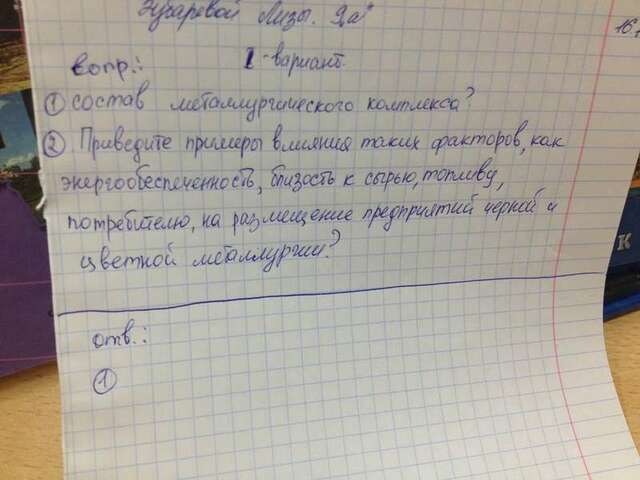 Лизы. 9"а"
16.1
вопр.: 1-вариант.
① состав металлургического комплекса?
② Приведите примеры влияния таких факторов, как
энергообеспеченность, близость к сырью, топливу,
потребителю, на размещение предприятий черной и
цветной металлургии?
отв.:
①
К